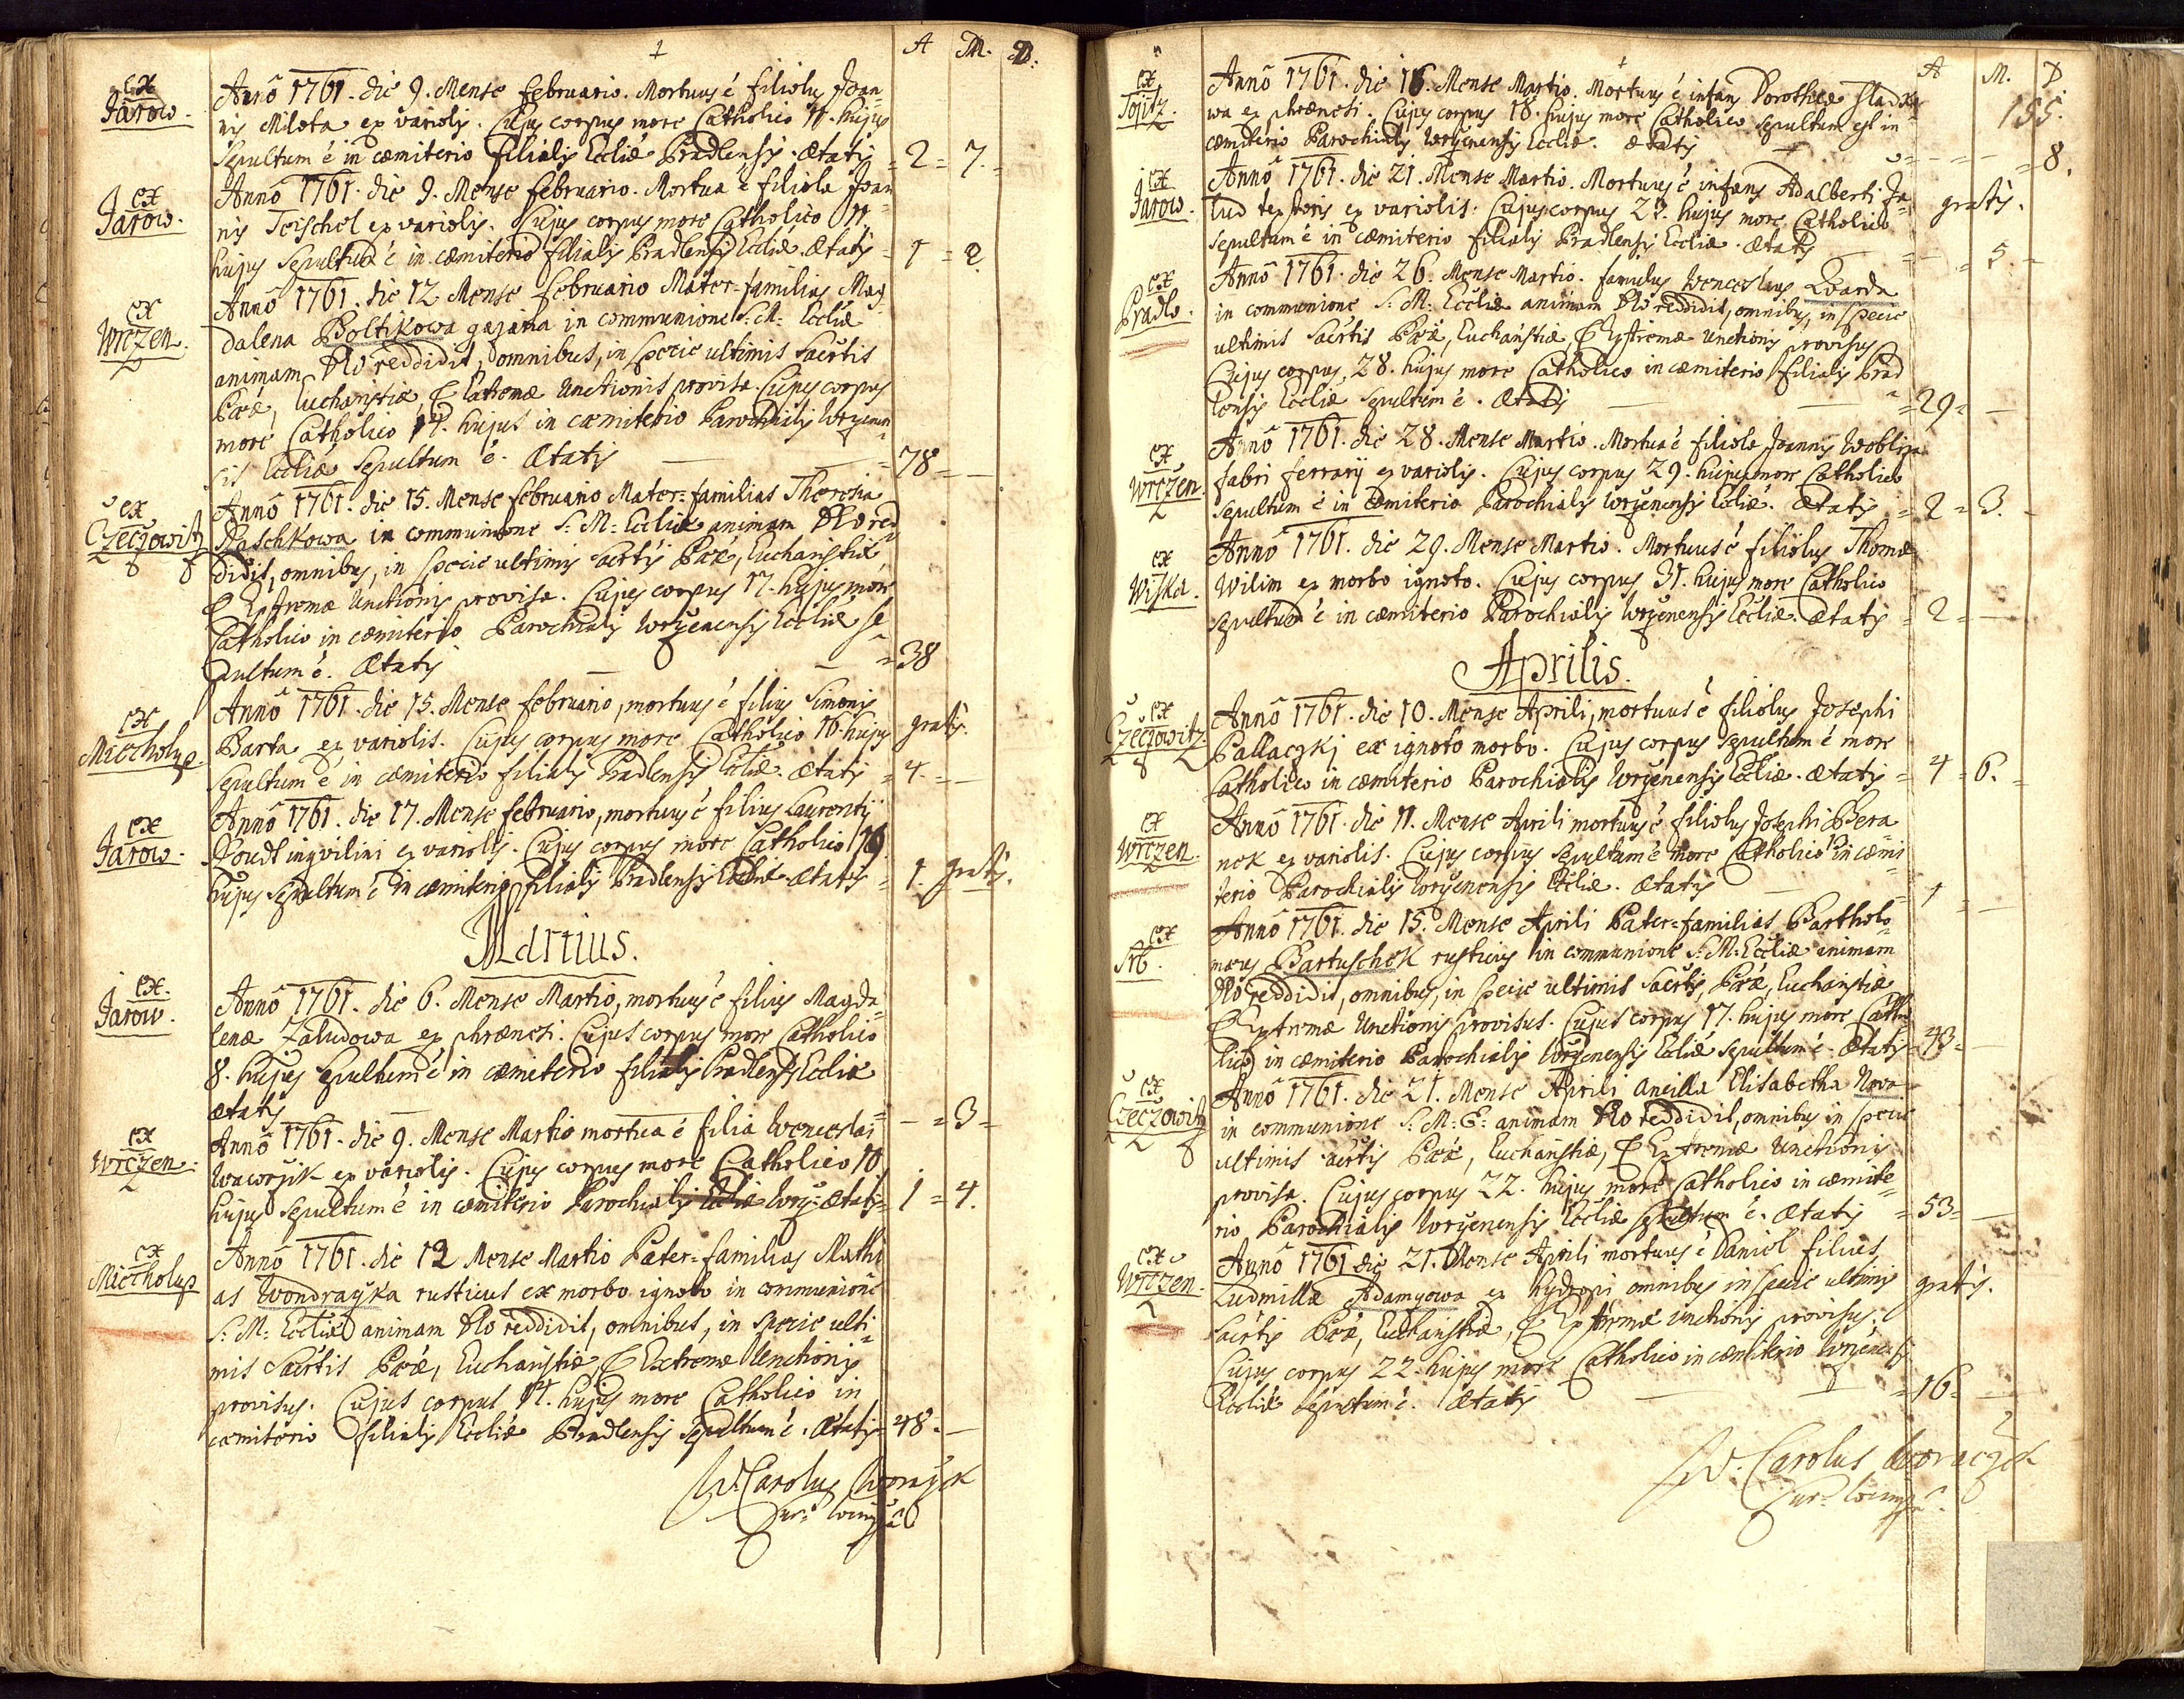 A M. D:
ex
Jarow.
Anno 1761. die 9. Mense Februario. Mortuus ê filiolus Joan
nis Milota ex variolis. Cujus corpus more Catholico 11. hujus
Sepultum ê in cæmiterio filialis Eccliæ Pradlensis. Ætatis = 2 = 7.
ex
Jarow.
Anno 1761. die 9. Mense Februario. Mortua ê filiola Joan
nis Teischel ex variolis. Cujus corpus more Catholico 11.
hujus Sepultum ê in cæmiterio filialis Pradlensis Eccliæ. Ætatis = 1 = 2.
ex
Wrczen.
Anno 1761. die 12 Mense Februario Mater-familias Mag
dalena Boltikowa gajana in communione S: M: Eccliæ
animam Deo reddidit, omnibus, in specie ultimis Sacrtis
Pœæ, Eucharistiæ, & Extremæ Unctionis provisa. Cujus corpus
more Catholico 14. hujus in cæmiterio Parochialis Wrczenen
sis Eccliæ Sepultum ê. Ætatis = 78 =
ex
Czeczowitz
Anno 1761. die 15. Mense Februario Mater-familias Theresia
Raschkowa in communione S: M: Eccliæ animam Deo red
didit, omnibus, in specie ultimis Sacrtis Pœæ, Eucharistiæ,
& Extremæ Unctionis provisa. Cujus corpus 17. hujus more
Catholico in cæmiterio Parochialis Wrczenensis Eccliæ se
pultum ê. Ætatis = 38
ex
Miecholup
Anno 1761. die 15. Mense Februario, mortuus ê filius Simonis
Barta ex variolis. Cujus corpus more Catholico 16. hujus gratis.
Sepultum ê in cæmiterio filialis Pradlensis Eccliæ. Ætatis = 4. =
ex
Jarow.
Anno 1761. die 17. Mense Februario, mortuus ê filius Laurentij
Koudl inqvilini ex variolis. Cujus corpus more Catholico 19.
hujus Sepultum ê in cæmiterio filialis Pradlensis Eccliæ. Ætatis = 1. gratis.
Martius.
ex
Jarow.
Anno 1761. die 6. Mense Martio, mortuus ê filius Magda
lenæ Zaludowa ex phrænesi. Cujus corpus more Catholico
8. hujus Sepultum ê in cæmiterio filialis Pradlensis Eccliæ
Ætatis = 3 =
ex
Wrczen.
Anno 1761. die 9. Mense Martio mortua ê filia Wenceslai
Waworzik ex variolis. Cujus corpus more Catholico 10
hujus Sepultum ê in cæmiterio Parochialis Eccliæ Wrcz: Ætatis = 1 = 4.
ex
Miecholup
Anno 1761. die 12 Mense Martio Pater-familias Mathi
as Wondraczka rusticus ex morbo ignoto in communione
S: M: Eccliæ animam Deo reddidit, omnibus, in specie ulti
mis Sacrtis Pœæ, Eucharistiæ, & Extremæ Unctionis
provisus. Cujus corpus 14. hujus more Catholico in
cæmiterio filialis Eccliæ Pradlensis Sepultum ê. Ætatis = 48. =
W. Carolus Woraczek
Cur:
A M. D
155.
ex
Topitz.
Anno 1761. die 16. Mense Martio. Mortuus ê infans Dorotheæ Sladko
wa ex phrænesi. Cujus corpus 18. hujus more Catholico Sepultum est in
cæmiterio Parochialis Wrczenensis Eccliæ. Ætatis = 8.
ex
Jarow.
Anno 1761. die 21. Mense Martio. Mortuus ê infans Adalberti Ja
lud textoris ex variolis. Cujus corpus 23. hujus more Catholico gratis.
Sepultum ê in cæmiterio filialis Pradlensis Eccliæ. Ætatis = 5. =
ex
Pradlo.
Anno 1761. die 26. Mense Martio. famulus Wenceslaus Kwarda
in communione S: M: Eccliæ animam Deo reddidit, omnibus, in specie
ultimis Sacrtis Pœæ, Eucharistiæ, & Extremæ Unctionis provisus
Cujus corpus 28. hujus more Catholico in cæmiterio filialis Prad
lensis Eccliæ Sepultum ê. Ætatis = 29 =
ex
Wrczen.
Anno 1761. die 28. Mense Martio. Mortua ê filiola Joannis
fabri ferrarij ex variolis. Cujus corpus 29. hujus more Catholico
Sepultum ê in cæmiterio Parochialis Wrczenensis Eccliæ. Ætatis = 2 = 3.
ex
Wiska.
Anno 1761. die 29. Mense Martio. Mortuus ê filiolus Thomæ
Wilim ex morbo ignoto. Cujus corpus 31. hujus more Catholico
Sepultum ê in cæmiterio Parochialis Wrczenensis Eccliæ. Ætatis = 2 =
Aprilis.
ex
Czeczowitz
Anno 1761. die 10. Mense Aprili, mortuus ê filiolus Josephi
Pallaczkj ex ignoto morbo. Cujus corpus Sepultum ê more
Catholico in cæmiterio Parochialis Wrczenensis Eccliæ. Ætatis = 4 = 6. =
ex
Wrczen.
Anno 1761. die 11. Mense Aprili mortuus ê filiolus Josephi Bera
nek ex variolis. Cujus corpus Sepultum ê more Catholico in cæmi
terio Parochialis Wrczenensis Eccliæ. Ætatis = 1 =
ex
Srb.
Anno 1761. die 15. Mense Aprili Pater-familias Bartholo
mæus Bartuschek rusticus in communione S: M: Eccliæ animam
Deo reddidit, omnibus, in specie ultimis Sacrtis, Pœæ, Eucharistiæ
& Extremæ Unctionis provisus. Cujus corpus 17. hujus more Catho
lico in cæmiterio Parochialis Wrczenensis Eccliæ Sepultum ê. Ætatis = 43 =
ex
Czeczowitz
Anno 1761. die 21. Mense Aprili ancilla Elisabetha Nova
in communione S: M: E: animam Deo reddidit, omnibus in specie
ultimis Sacrtis Pœæ, Eucharistiæ, & Extremæ Unctionis
provisa. Cujus corpus 22. hujus more Catholico in cæmite
rio Parochialis Wrczenensis Eccliæ Sepultum ê. Ætatis = 53 =
ex
Wrczen.
Anno 1761 die 21. Mense Aprili mortuus ê Daniel filius
Ludmillæ Adamczowa ex hydropi omnibus in specie ultimis gratis.
Sacrtis Pœæ, Eucharistiæ, & Extremæ unctionis provisus.
Cujus corpus 22. hujus more Catholico in cæmiterio Wrczenensis
Eccliæ Sepultum ê. Ætatis = 16 =
W. Carolus Woraczek
Cur: